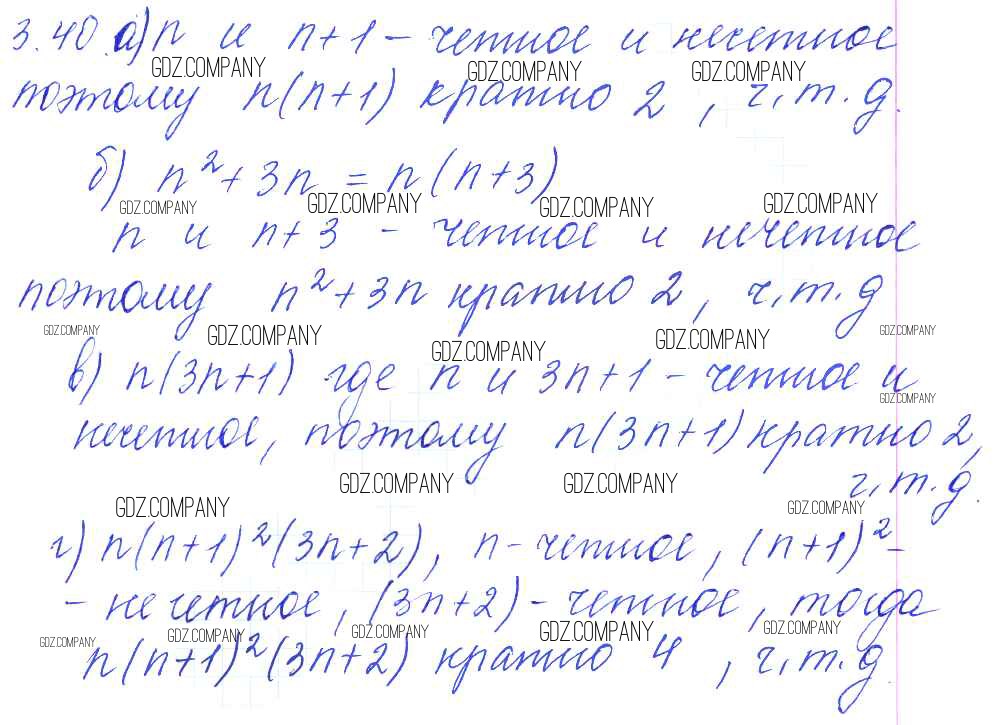 3.40 а) n и n+1 – четное и нечетное
GDZ.COMPANY GDZ.COMPANY GDZ.COMPANY
поэтому n(n+1) кратно 2, ч.т.д.
б) n²+3n = n(n+3)
GDZ.COMPANY GDZ.COMPANY GDZ.COMPANY GDZ.COMPANY
n и n+3 – четное и нечетное
поэтому n²+3n кратно 2, ч.т.д
GDZ.COMPANY GDZ.COMPANY GDZ.COMPANY GDZ.COMPANY GDZ.COMPANY
в) n(3n+1) где n и 3n+1 – четное и
GDZ.COMPANY
нечетное, поэтому n(3n+1) кратно 2,
ч.т.д.
GDZ.COMPANY GDZ.COMPANY GDZ.COMPANY GDZ.COMPANY
г) n(n+1)²(3n+2), n – четное, (n+1)² –
– нечетное, (3n+2) – четное, тогда
GDZ.COMPANY GDZ.COMPANY GDZ.COMPANY GDZ.COMPANY GDZ.COMPANY
n(n+1)²(3n+2) кратно 4, ч.т.д.